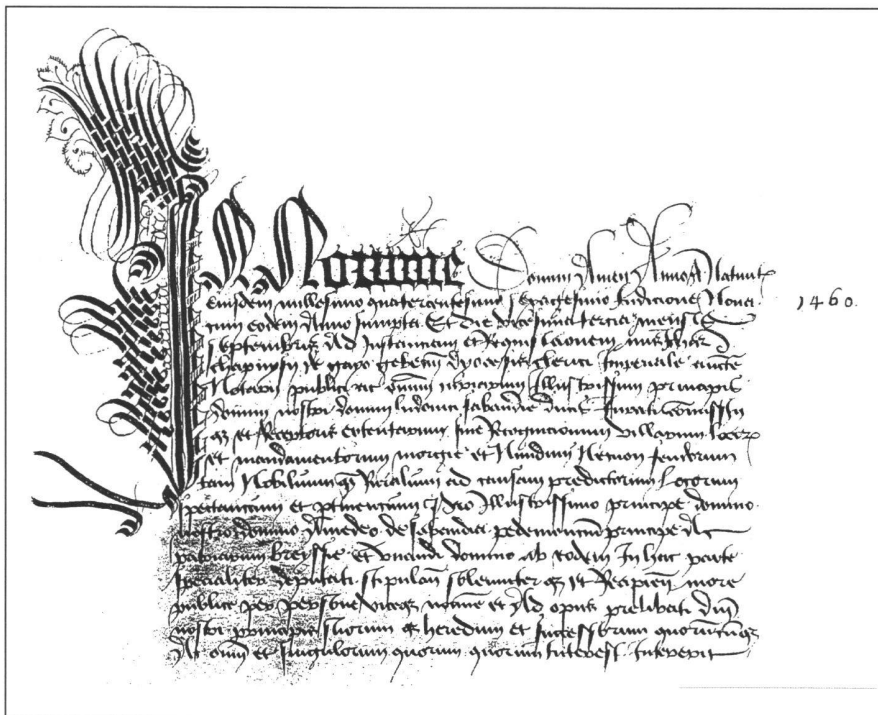 In Nomine Domini Amen Anno A Nativit
eiusdem millesimo quatercentesimo sexagesimo Indicione Nona
cum eodem Anno sumpta Et die vicesima tercia mensis
septembris Ad Instanciam et Requisicionem mei
de gayo gebenn dyocesis clerici Imperiale aucte
Notarii publici ac curiarum Illustrissimi principis
domini nostri domini ludovici sabaudie ducis Jurati comissarii
et Receptoris extentarum sive Recognicionum villarum
et mandamentorum morgie et Nividuni Necnon feudorum
tam Nobilium Ruralium ad causam predictorum locorum
spectancium et pertinencium Illustrissimo principe domino
nostro domino Amedeo de sabaudia pedemoncium principe Ac
patriarum breyssie et vuaudi domino ab eodem In hac parte
specialiter deputati stipulan solemniter et Recipien more
publice persone vice nomine et Ad opus prelibati
nostri principis suorum heredum et successorum quorumcumque
Ac omni et singulorum quorum Interest Intererit
1460.